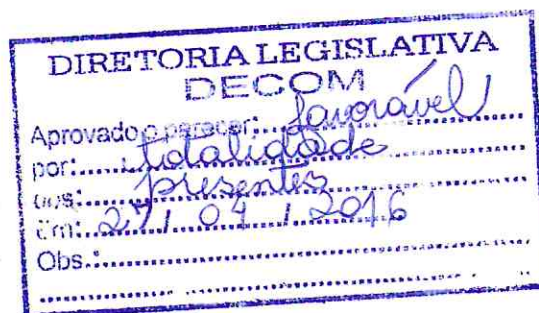 DIRETORIA LEGISLATIVA
DECOM
Aprovado o parecer: favorável
por: totalidade
dos: presentes
Em: 27 / 04 / 2016
Obs.: